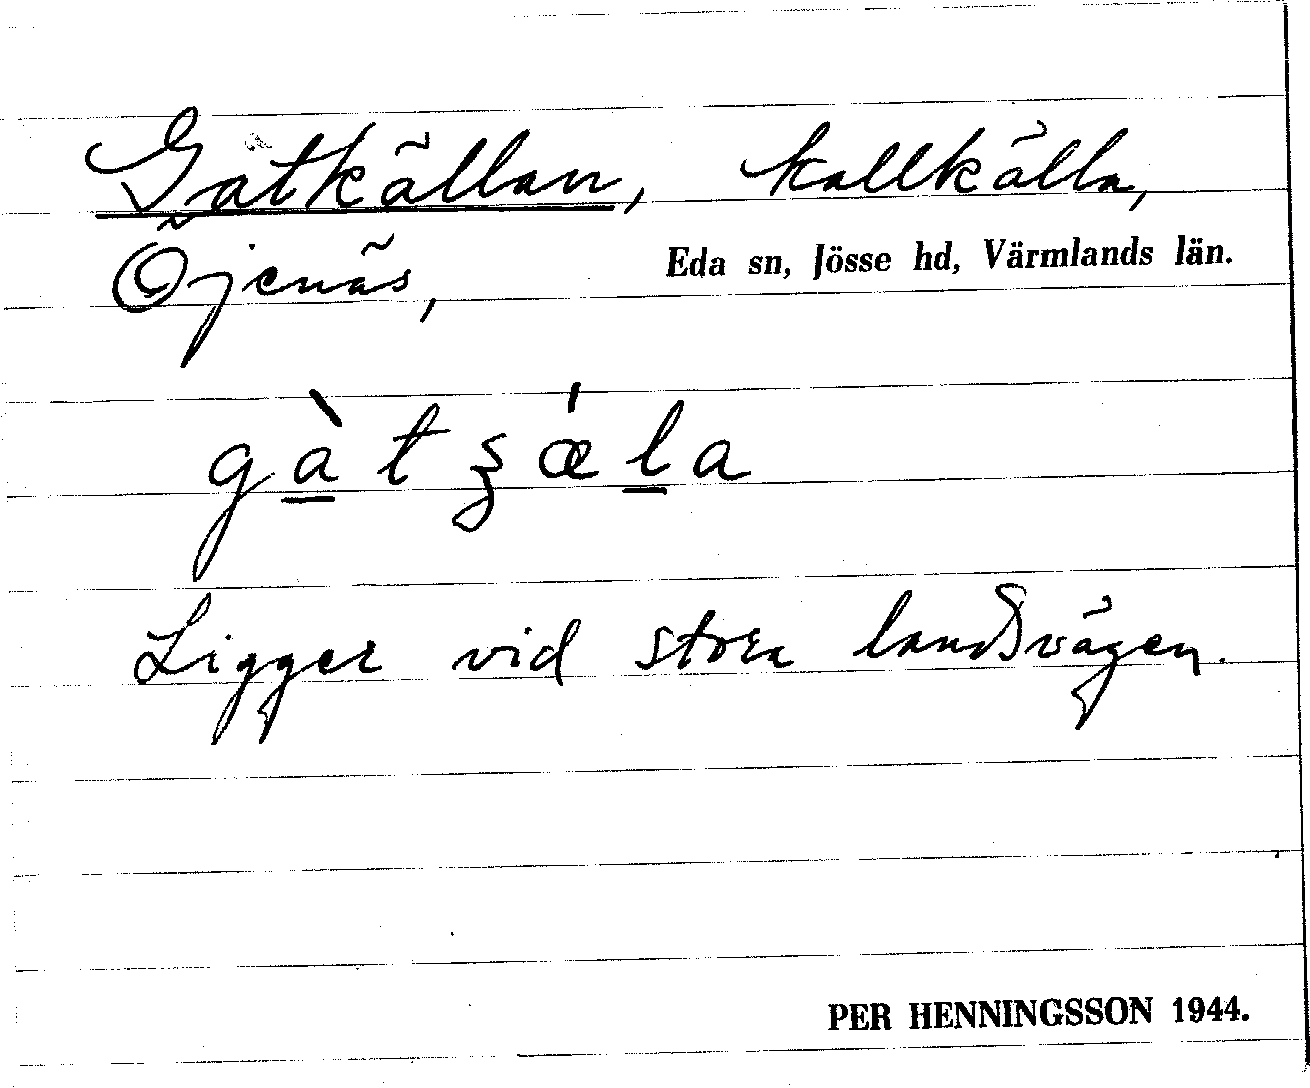 Gatkällan, kallkälla,
Öjenäs, Eda sn, Jösse hd, Värmlands län.
gàtʒǽla
Ligger vid stora landsvägen.
PER HENNINGSSON 1944.